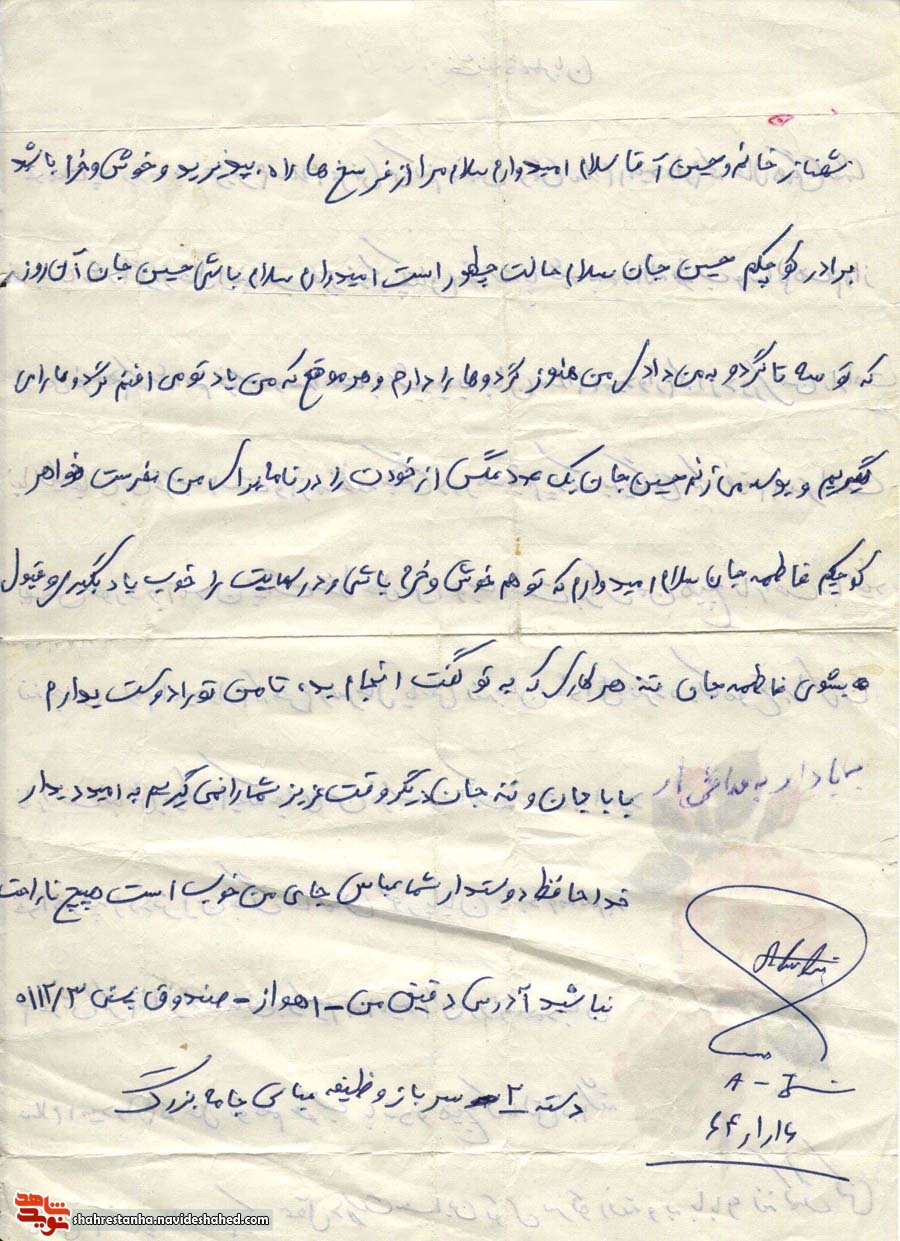 شهناز خانم و حسین آقا سلام امیدوارم سلام مرا از فرسخ ها راه بپذیرید و خوش و خرم باشید
برادر کوچکم حسین جان سلام حالت چطور است امیدوارم سلام باشی حسین جان آن روز
که تو سه تا گردو به من دادی من هنوز گردوها را دارم و هر موقع که من یاد تو می افتم گردوها را می
گیریم و بوسه می زنم حسین جان یک عدد عکس از خودت را در نامه برای من بفرست خواهر
کوچکم فاطمه جان سلام امیدوارم که تو هم خوش و خرم باشی و درسهایت را خوب یاد بگیری و قبول
بشوی فاطمه جان ننه هر کاری که به تو گفت انجام بده تا من تو را دوست بدارم
بابا جان و ننه جان دیگر وقت عزیز شما را نمی گیریم به امید دیدار
خداحافظ دوستدار شما عباس جای من خوب است هیچ ناراحت
نباشید آدرس دقیق من - اهواز - صندوق پستی ۳/۱۱۲
دسته ۲ سرباز وظیفه عباس جامه بزرگ
A - J
۶۴
نوید شاهد
shahrestanha.navideshahed.com